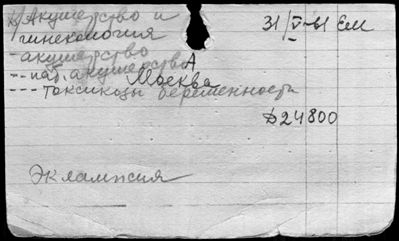 Акушерство и
гинекология
- акушерство
-- пат. акушерство А
Москва
--- токсикозы беременности
31/V-61 Ем
Д24800
Эклампсия